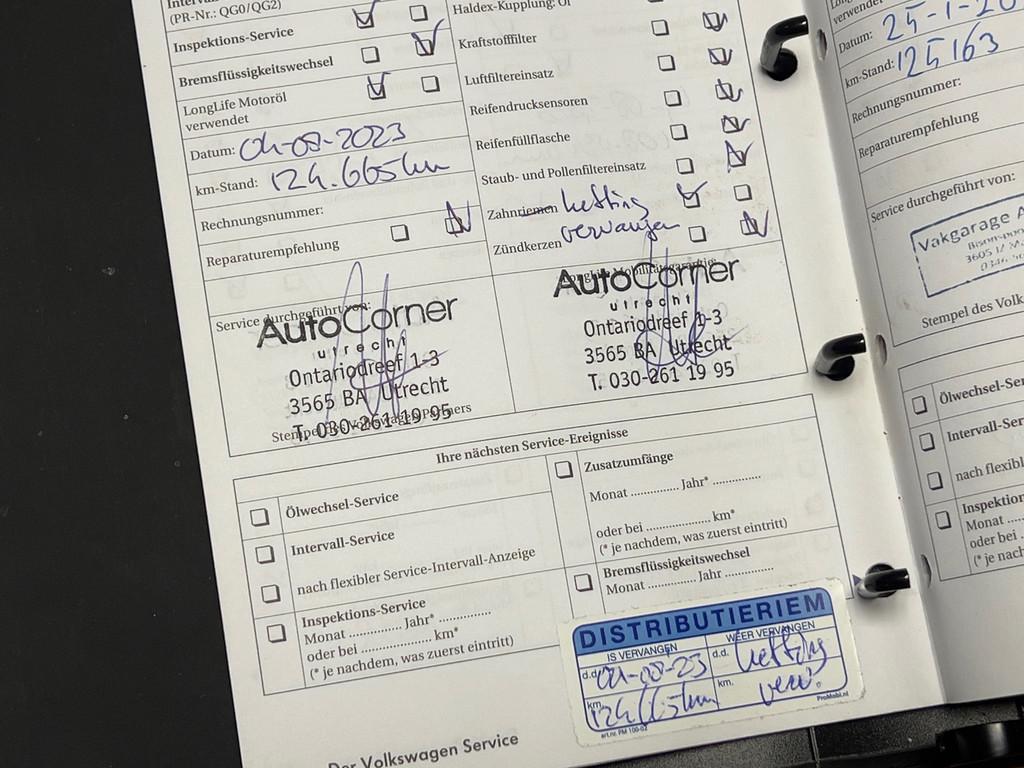 (PR-Nr.: QG0/QG2)
Inspektions-Service
Bremsflüssigkeitswechsel
LongLife Motoröl
verwendet
Datum: 04-08-2023
km-Stand: 124.665km
Rechnungsnummer:
Reparaturempfehlung
Haldex-Kupplung: Öl
Kraftstofffilter
Luftfiltereinsatz
Reifendrucksensoren
Reifenfüllflasche
Staub- und Pollenfiltereinsatz
Zahnriemen ketting
vervangen
Zündkerzen
Service durchgeführt von:
AutoCorner
utrecht
Ontariodreef 1-3
3565 BA Utrecht
T. 030-261 19 95
AutoCorner
utrecht
Ontariodreef 1-3
3565 BA Utrecht
T. 030-261 19 95
Ihre nächsten Service-Ereignisse
Ölwechsel-Service
Intervall-Service
nach flexibler Service-Intervall-Anzeige
Inspektions-Service
Monat .............. Jahr* ..............
oder bei .................... km*
(* je nachdem, was zuerst eintritt)
Zusatzumfänge
Monat .............. Jahr* ..............
oder bei .................... km*
(* je nachdem, was zuerst eintritt)
Bremsflüssigkeitswechsel
Monat .............. Jahr ..............
DISTRIBUTIERIEM
IS VERVANGEN
WEER VERVANGEN
d.d. 04-08-23
d.d. ketting
km. 124.665km
km. verv.
art.nr. PM 100-02
ProMobi.nl
Der Volkswagen Service
verwendet
Datum: 25-1-20
km-Stand: 125163
Rechnungsnummer:
Reparaturempfehlung
Service durchgeführt von:
Vakgarage A
Stempel des Volk
Ölwechsel-Ser
Intervall-Ser
nach flexibl
Inspektion
Monat ....
oder bei .
(* je nach